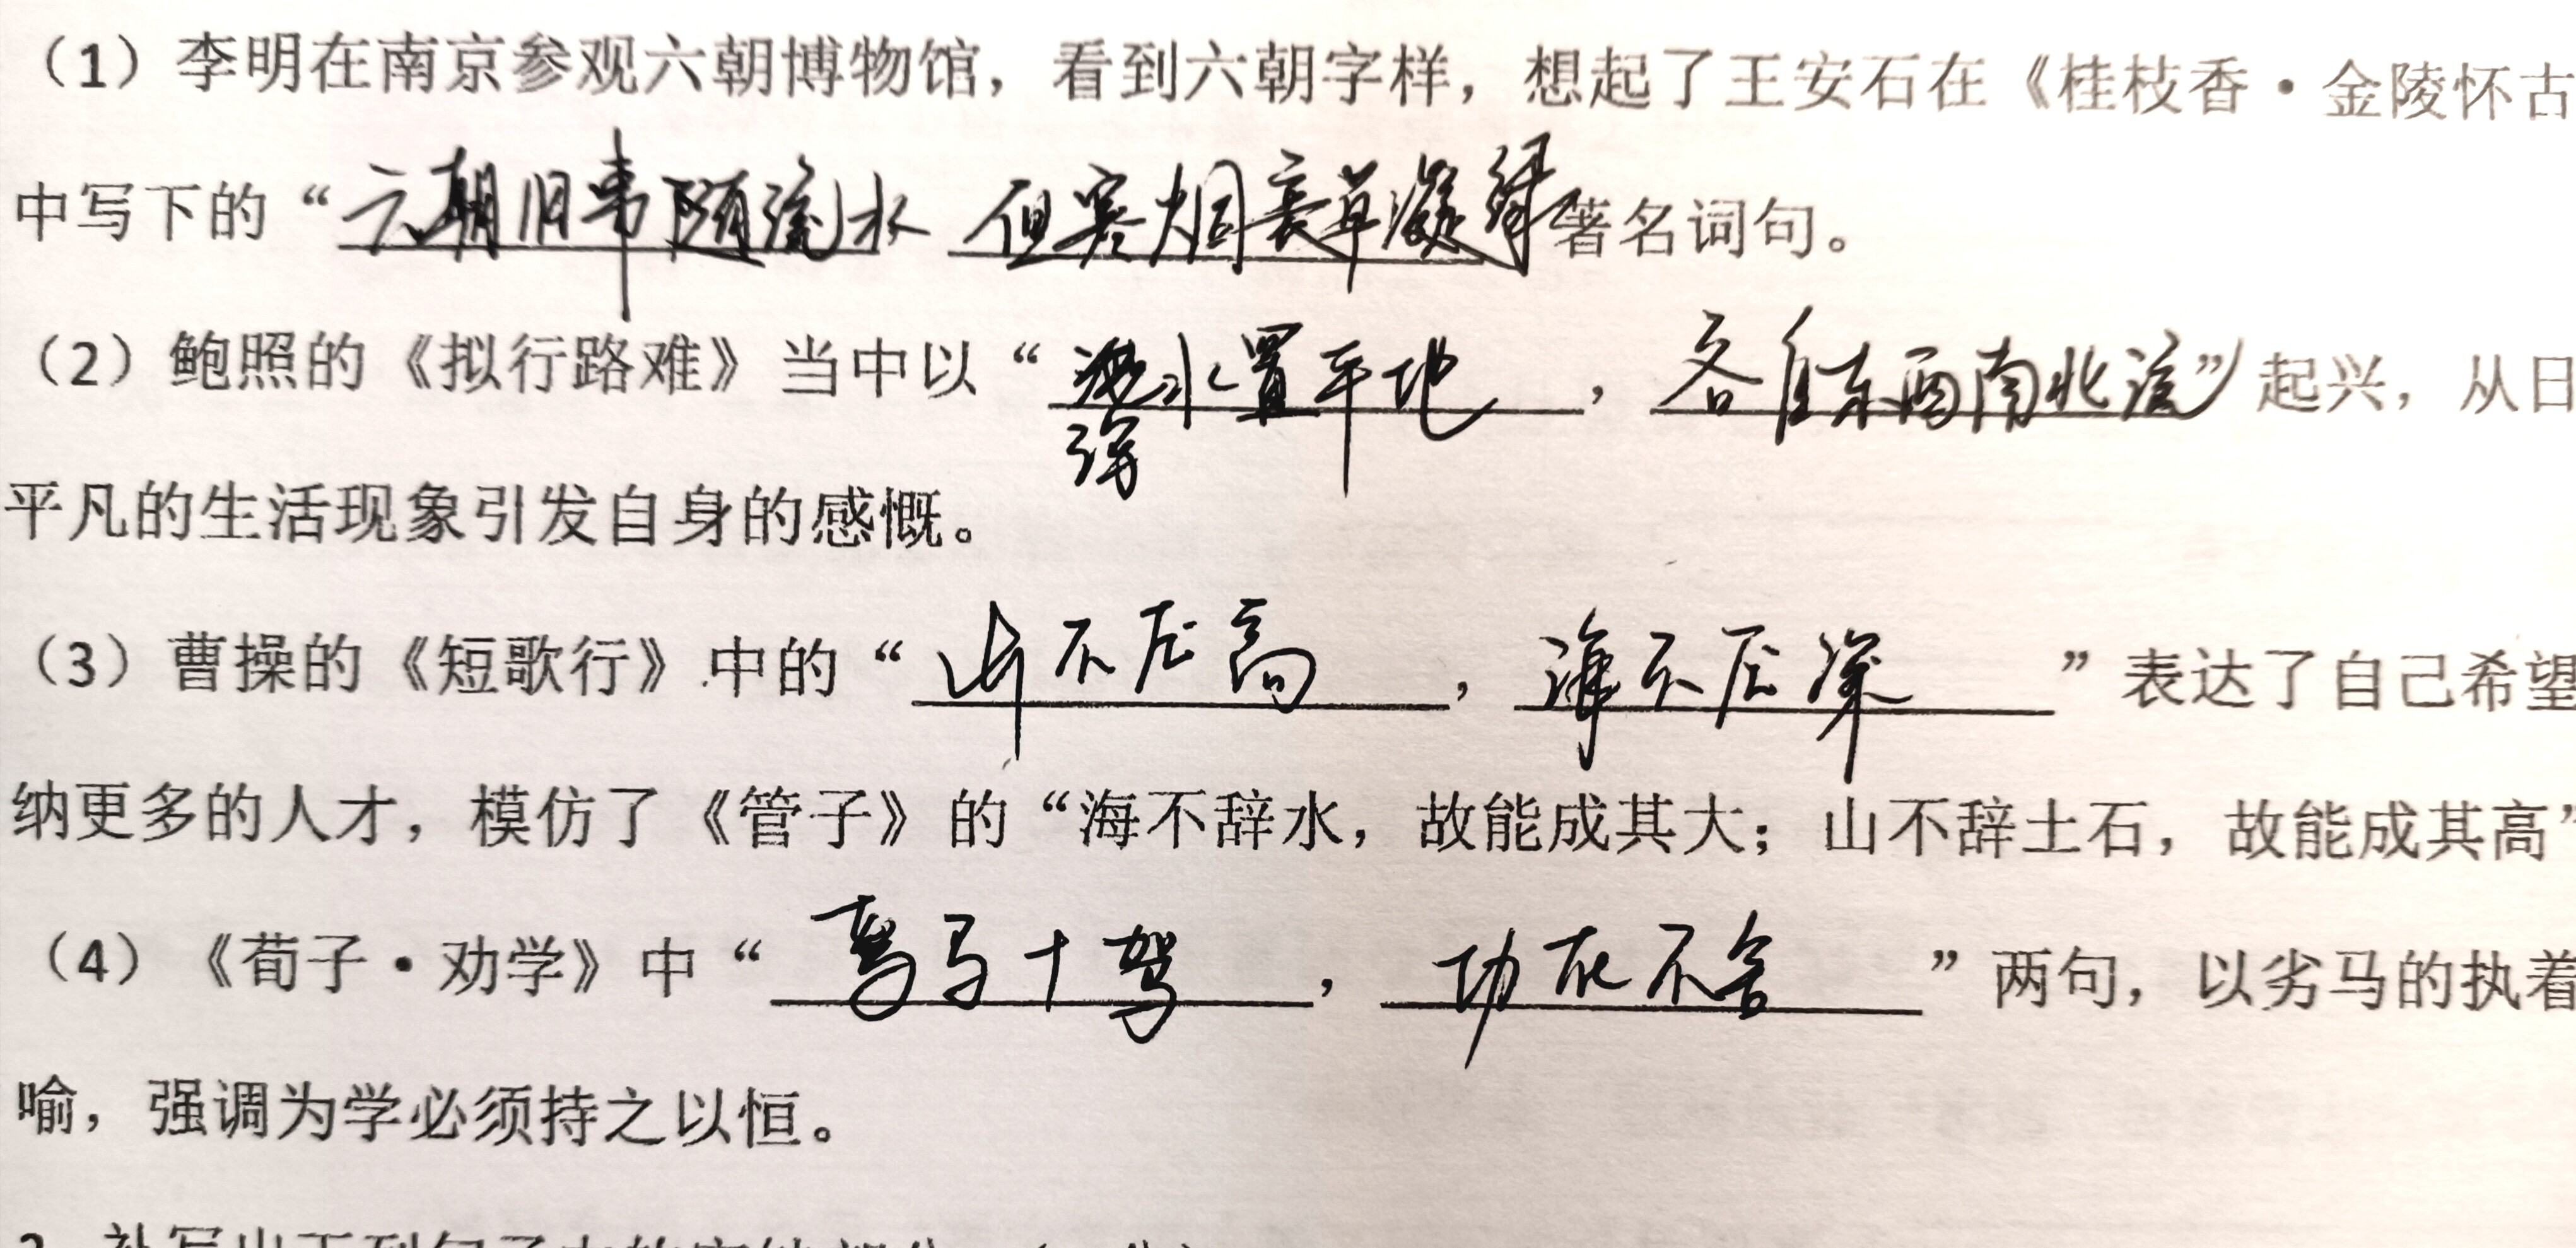 （1）李明在南京参观六朝博物馆，看到六朝字样，想起了王安石在《桂枝香·金陵怀古
中写下的“六朝旧事随流水 但寒烟衰草凝绿著名词句。
（2）鲍照的《拟行路难》当中以“水置平地，各自东西南北流”起兴，从日
平凡的生活现象引发自身的感慨。
（3）曹操的《短歌行》中的“山不厌高，海不厌深”表达了自己希望
纳更多的人才，模仿了《管子》的“海不辞水，故能成其大；山不辞土石，故能成其高”
（4）《荀子·劝学》中“驽马十驾，功在不舍”两句，以劣马的执着
喻，强调为学必须持之以恒。